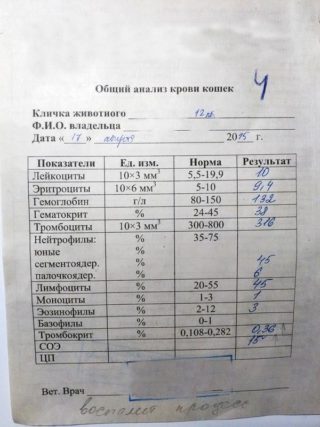 Общий анализ крови кошек
4
Кличка животного 12 лет
Ф.И.О. владельца
Дата « 17 » августа 2015 г.
Показатели Ед. изм. Норма Результат
Лейкоциты 10×3 мм³ 5,5-19,9 10
Эритроциты 10×6 мм³ 5-10 9,4
Гемоглобин г/л 80-150 132
Гематокрит % 24-45 38
Тромбоциты 10×3 мм³ 300-800 316
Нейтрофилы: % 35-75
юные %
сегментоядер. % 45
палочкоядер. % 6
Лимфоциты % 20-55 45
Моноциты % 1-3 1
Эозинофилы % 2-12 3
Базофилы % 0-1
Тромбокрит % 0,108-0,282 0,36
СОЭ 15
ЦП
Вет. Врач
воспалит процесс